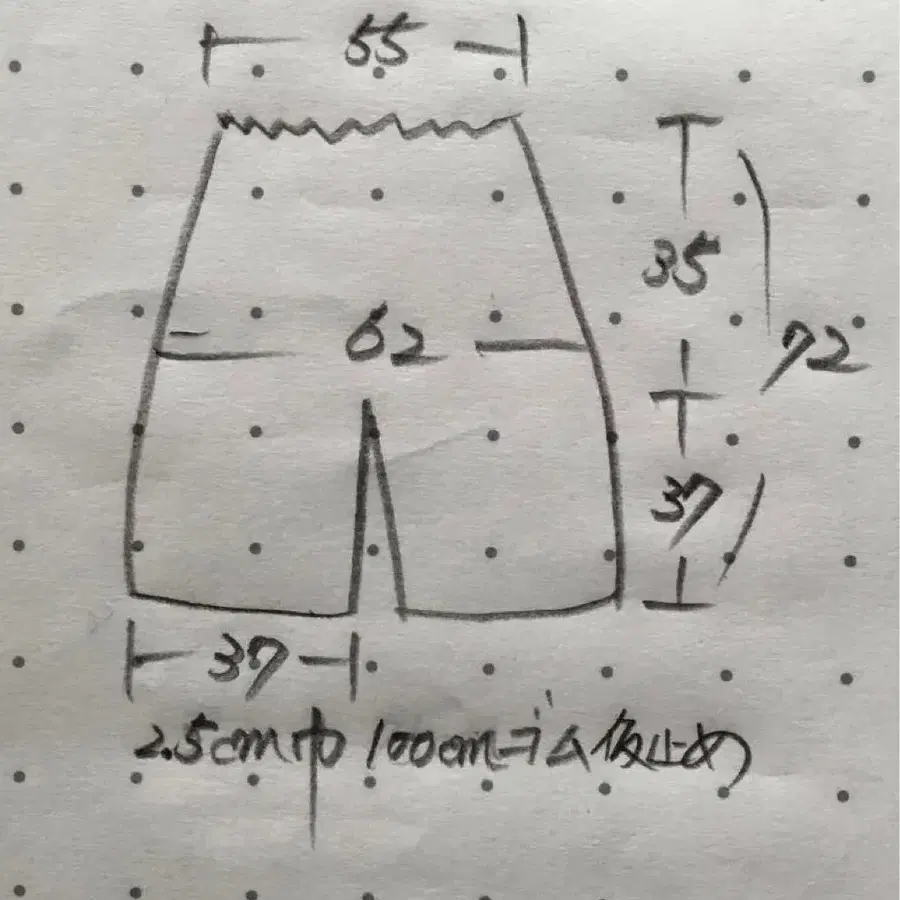 55
35
62
72
37
37
2.5cm巾 100cmゴム仮止め